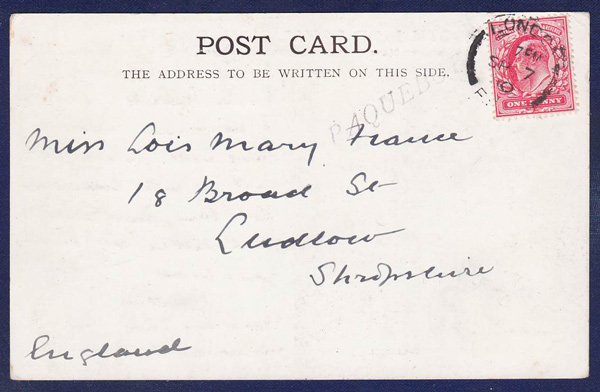 POST CARD.
THE ADDRESS TO BE WRITTEN ON THIS SIDE.
LONDON
7 PM
SP 7
PAQUEBO
ONE PENNY
Miss Lois Mary France
18 Broad St
Ludlow
Shropshire
England